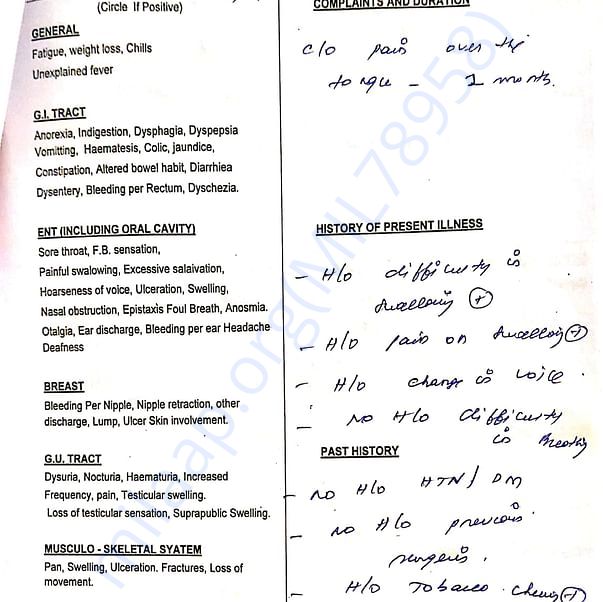 (Circle If Positive)
GENERAL
Fatigue, weight loss, Chills
Unexplained fever
G.I. TRACT
Anorexia, Indigestion, Dysphagia, Dyspepsia
Vomitting, Haematesis, Colic, jaundice,
Constipation, Altered bowel habit, Diarrhiea
Dysentery, Bleeding per Rectum, Dyschezia.
ENT (INCLUDING ORAL CAVITY)
Sore throat, F.B. sensation,
Painful swalowing, Excessive salaivation,
Hoarseness of voice, Ulceration, Swelling,
Nasal obstruction, Epistaxis Foul Breath, Anosmia.
Otalgia, Ear discharge, Bleeding per ear Headache
Deafness
BREAST
Bleeding Per Nipple, Nipple retraction, other
discharge, Lump, Ulcer Skin involvement.
G.U. TRACT
Dysuria, Nocturia, Haematuria, Increased
Frequency, pain, Testicular swelling.
Loss of testicular sensation, Suprapublic Swelling.
MUSCULO - SKELETAL SYATEM
Pan, Swelling, Ulceration. Fractures, Loss of
movement.
COMPLAINTS AND DURATION
c/o pain over the
tongue - 1 month.
HISTORY OF PRESENT ILLNESS
- H/o difficulty in
swallowing (+)
- H/o pain on swallowing (+)
- H/o change in voice.
- No H/o difficulty
in breathing
PAST HISTORY
- No H/o HTN / DM
- No H/o previous
surgeries.
- H/o Tobacco chewing (+)
milaap.org(MIL78958)